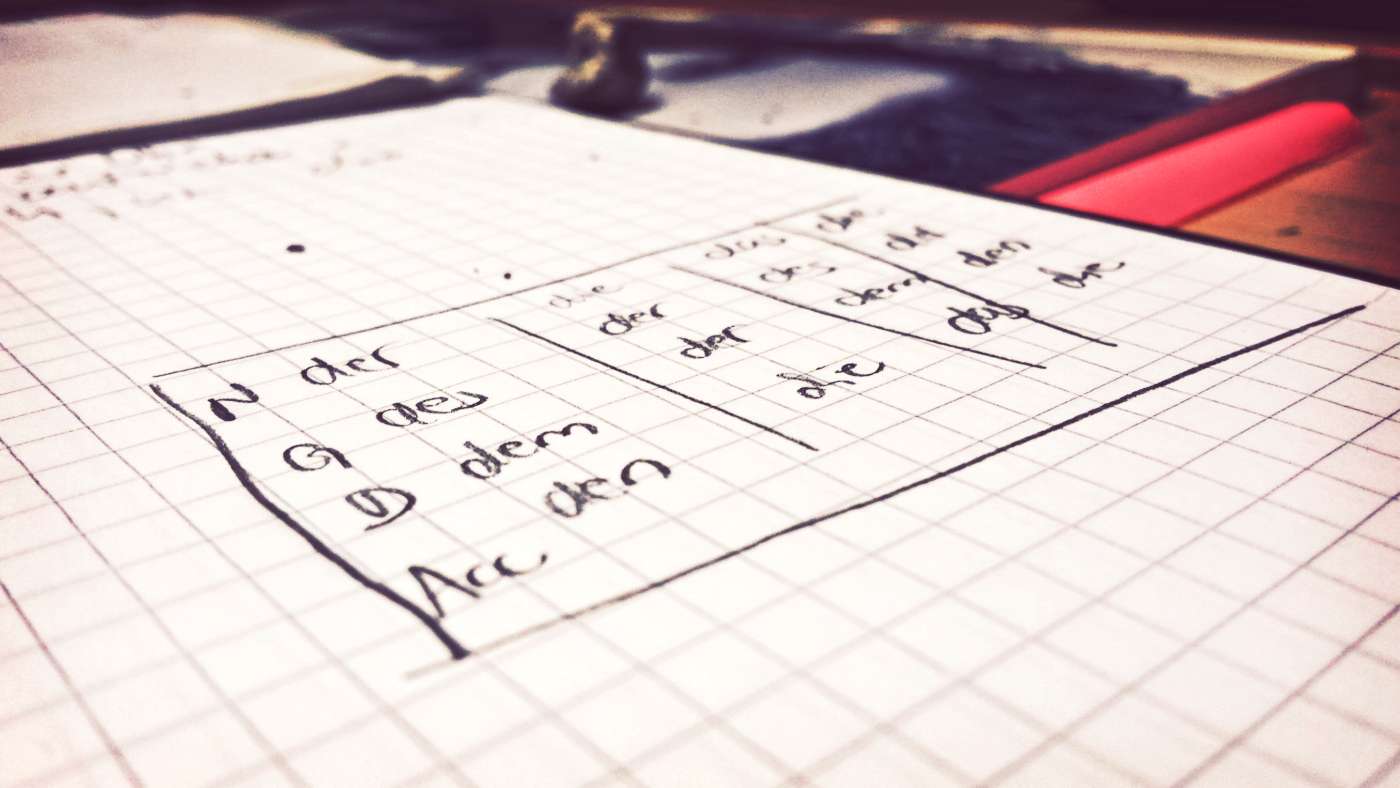 N der die das die
G des der des der
D dem der dem den
Acc den die das die